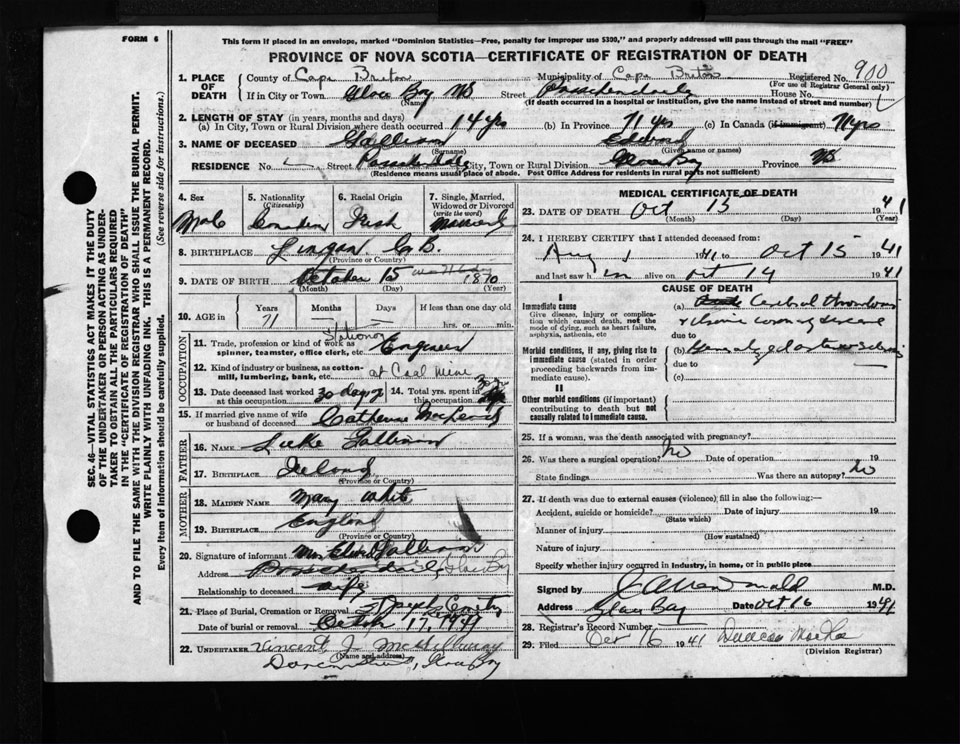 FORM 6
This form if placed in an envelope, marked "Dominion Statistics—Free, penalty for improper use $300," and properly addressed will pass through the mail "FREE"
PROVINCE OF NOVA SCOTIA—CERTIFICATE OF REGISTRATION OF DEATH
SEC. 46—VITAL STATISTICS ACT MAKES IT THE DUTY
OF THE UNDERTAKER OR PERSON ACTING AS UNDER-
TAKER TO OBTAIN ALL THE PARTICULARS REQUIRED
IN THE "CERTIFICATE OF REGISTRATION OF DEATH"
AND TO FILE THE SAME WITH THE DIVISION REGISTRAR WHO SHALL ISSUE THE BURIAL PERMIT.
WRITE PLAINLY WITH UNFADING INK. THIS IS A PERMANENT RECORD.
Every item of information should be carefully supplied. (See reverse side for instructions.)
1. PLACE OF DEATH County of Cape Breton Municipality of Cape Breton Registered No. 900
(For use of Registrar General only)
If in City or Town Glace Bay NS Street House No.
(Name) (If death occurred in a hospital or institution, give the name instead of street and number)
2. LENGTH OF STAY (in years, months and days)
(a) In City, Town or Rural Division where death occurred 14 yrs (b) In Province 71 yrs (c) In Canada (if immigrant) 71 yrs
3. NAME OF DECEASED Edward
(Surname) (Given name or names)
RESIDENCE No. Street City, Town or Rural Division Glace Bay Province NS
(Residence means usual place of abode. Post Office Address for residents in rural parts not sufficient)
4. Sex Male
5. Nationality (Citizenship) Canadian
6. Racial Origin Irish
7. Single, Married, Widowed or Divorced (write the word) Married
8. BIRTHPLACE Lingan C.B.
(Province or Country)
9. DATE OF BIRTH October 15 1870
(Month) (Day)
10. AGE in Years 71 Months — Days — If less than one day hrs. or min.
OCCUPATION
11. Trade, profession or kind of work as spinner, teamster, office clerk, etc. Stationary Engineer
12. Kind of industry or business, as cotton-mill, lumbering, bank, etc. at Coal Mine
13. Date deceased last worked at this occupation 30 days 14. Total yrs. spent in this occupation
15. If married give name of wife or husband of deceased Catherine
FATHER
16. Name Luke
17. Birthplace Ireland
(Province or Country)
MOTHER
18. Maiden Name Mary White
19. Birthplace England
(Province or Country)
20. Signature of informant Mrs Edward
Address Glace Bay
Relationship to deceased wife
21. Place of Burial, Cremation or Removal St Joseph
Date of burial or removal October 17, 1941
22. UNDERTAKER Vincent J.
(Name and address)
Glace Bay
MEDICAL CERTIFICATE OF DEATH
23. DATE OF DEATH Oct 15 1941
(Month) (Day) (Year)
24. I HEREBY CERTIFY that I attended deceased from:
Aug 1 1941 to Oct 15 1941
and last saw him alive on Oct 14 1941
CAUSE OF DEATH
I
Immediate cause
Give disease, injury or complication which caused death, not the mode of dying, such as heart failure, asphyxia, asthenia, etc
(a) Cerebral thrombosis
& chronic coronary disease
due to
Morbid conditions, if any, giving rise to immediate cause (stated in order proceeding backwards from immediate cause).
(b)
due to
(c)
II
Other morbid conditions (if important) contributing to death but not causally related to immediate cause.
25. If a woman, was the death associated with pregnancy?
26. Was there a surgical operation? no Date of operation 19
State findings Was there an autopsy? no
27. If death was due to external causes (violence) fill in also the following:—
Accident, suicide or homicide? Date of injury 19
(State which)
Manner of injury
(How sustained)
Nature of injury
Specify whether injury occurred in industry, in home, or in public place
Signed by M.D.
Address Glace Bay Date Oct 16 1941
28. Registrar's Record Number
29. Filed Oct 16 1941 Duncan
(Division Registrar)